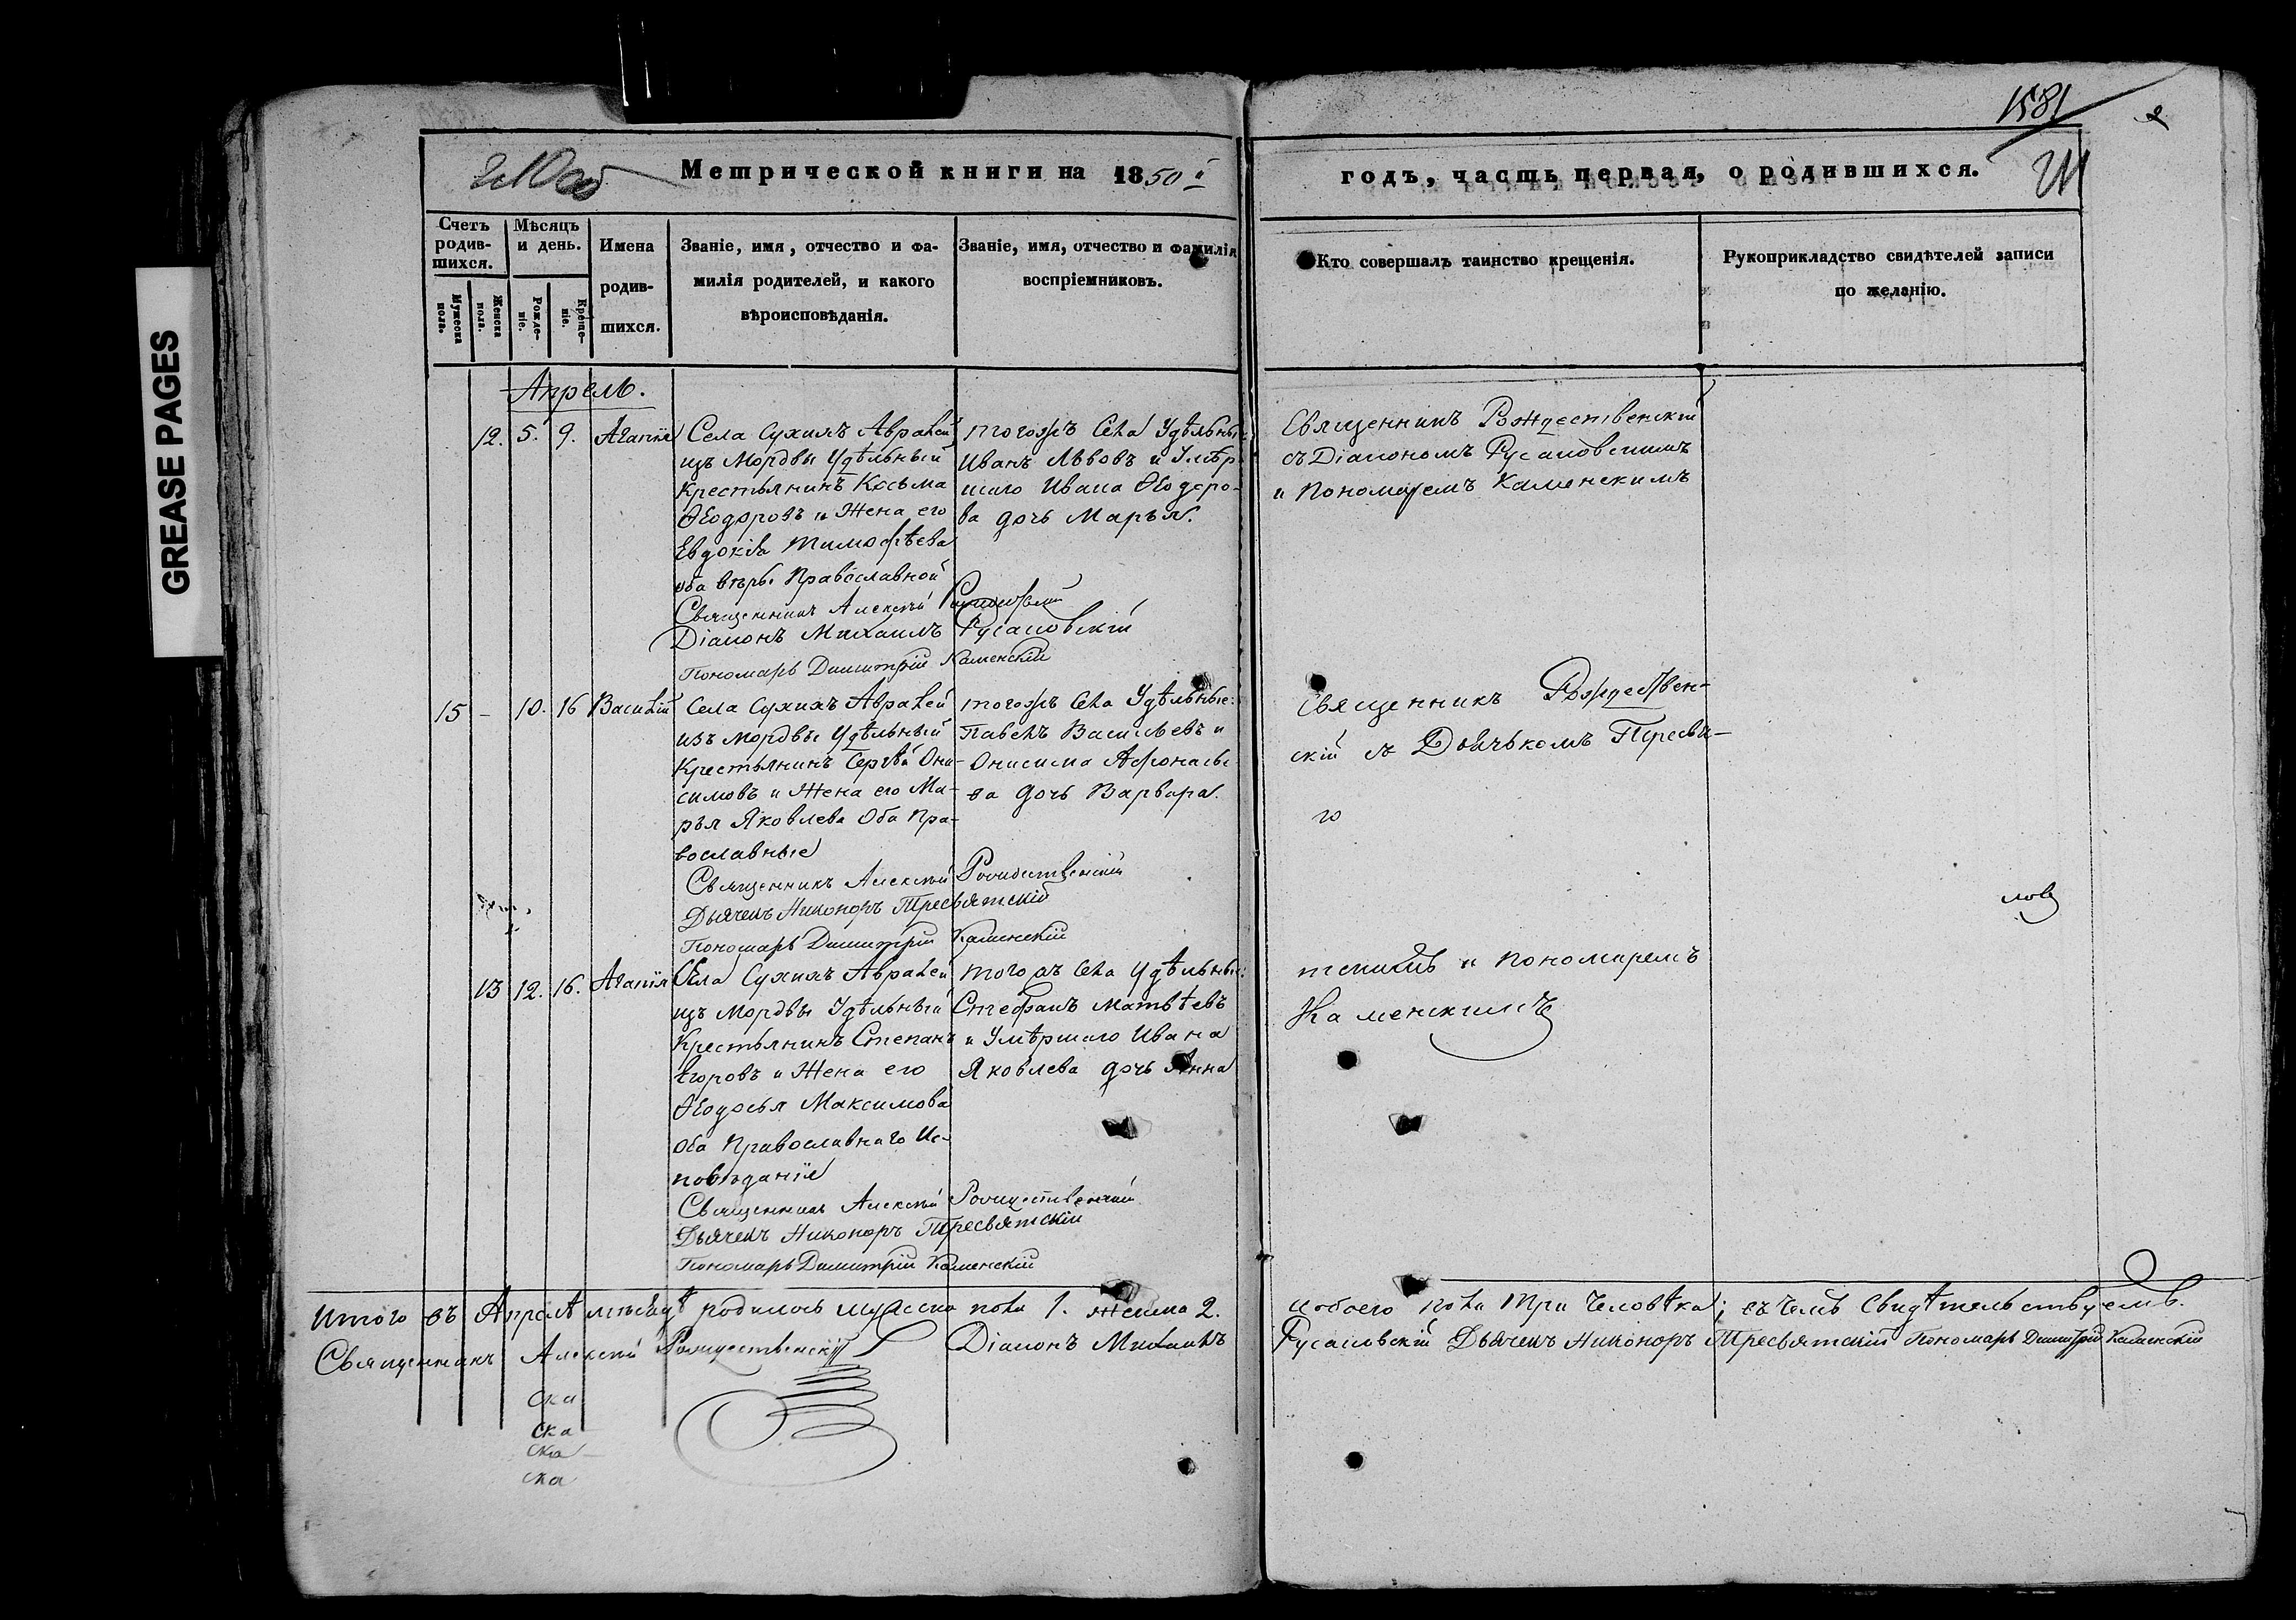 GREASE PAGES
1581
Метрической книги на 1850й
годъ, часть первая, о родившихся.
Счетъ родив-шихся.
Мѣсяцъ и день.
Имена родив-шихся.
Званіе, имя, отчество и фа-
милія родителей, и какого
вѣроисповѣданія.
Званіе, имя, отчество и фамилія
воспріемниковъ.
Кто совершалъ таинство крещенія.
Рукоприкладство свидѣтелей записи
по желанію.
Мужеска пола.
Женска пола.
Рожде-ніе.
Креще-ніе.
Апрель.
12. 5. 9. Агапія
Села Сухихъ Авралей
изъ Мордвы Удѣльный
Крестьянинъ Косьма
Ѳеодоровъ и Жена его
Евдокія Тимофѣева
оба вѣры Православной
Священникъ Алексѣй Рождественскій
Діаконъ Михаилъ Русановскій
Пономарь Димитрій Каменскій
тогожъ Села Удѣльные:
Иванъ Львовъ и Умѣр-
шаго Ивана Ѳеодоро-
ва дочь Марья.
Священникъ Рождественскій
съ Діакономъ Русановскимъ
и Пономаремъ Каменскимъ
15 - 10. 16 Василій
Села Сухихъ Авралей
изъ мордвы Удѣльный
Крестьянинъ Сергѣй Они-
симовъ и Жена его Ма-
рья Яковлева Оба Пра-
вославные
Священникъ Алексѣй Рождественскій
Дьячекъ Никоноръ Тресвятскій
Пономарь Димитрій Каменскій
тогожъ Села Удѣльные:
Павелъ Васильевъ и
Онисима Афонасье-
ва дочь Варвара.
Священникъ Рождествен-
скій съ Дьячькомъ Тресвя-
го
13 12. 16. Агапія
Села Сухихъ Авралей
изъ Мордвы Удѣльный
Крестьянинъ Степанъ
Егоровъ и Жена его
Ѳеодосья Максимова
Оба Православнаго Ис-
повѣданія
Священникъ Алексѣй Рождественскій
Дьячекъ Никоноръ Тресвятскій
Пономарь Димитрій Каменскій
тогожъ Села Удѣльные:
Стефанъ Матвѣевъ
и Умѣршаго Ивана
Яковлева дочь Анна
тскимъ и Пономаремъ
Каменскимъ
Итого въ Апрелѣ мѣсяцѣ родилось мужеска пола 1. женска 2. и обоего пола три человѣка; въ чемъ Свидѣтельствуемъ.
Священникъ Алексѣй Рождественскій Діаконъ Михаилъ Русановскій Дьячекъ Никоноръ Тресвятскій Пономарь Димитрій Каменскій
ска
ска
ска
ска